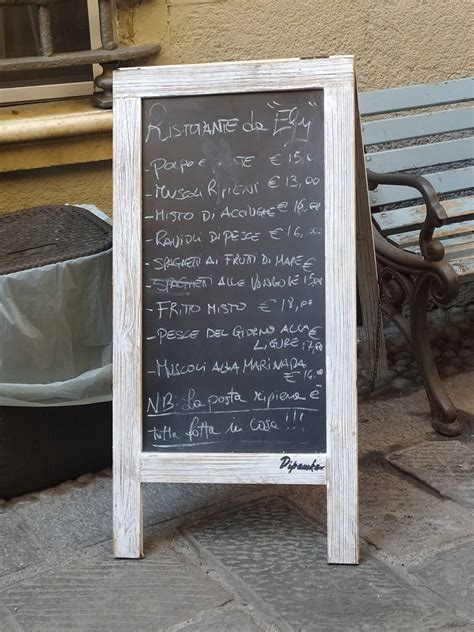 RISTORANTE da "Efy"
- POLPO E PATATE € 15,00
- MUSCOLI RIPIENI € 13,00
- MISTO DI ACCIUGHE € 16,00
- RAVIOLI DI PESCE € 16,
- SPAGHETTI AI FRUTTI DI MARE €
- SPAGHETTI ALLE VONGOLE 15,00
- FRITTO MISTO € 18,00
- PESCE DEL GIORNO ALLA €
LIGURE
- MUSCOLI ALLA MARINARA
€
NB: La pasta ripiena è
tutta fatta in casa !!!